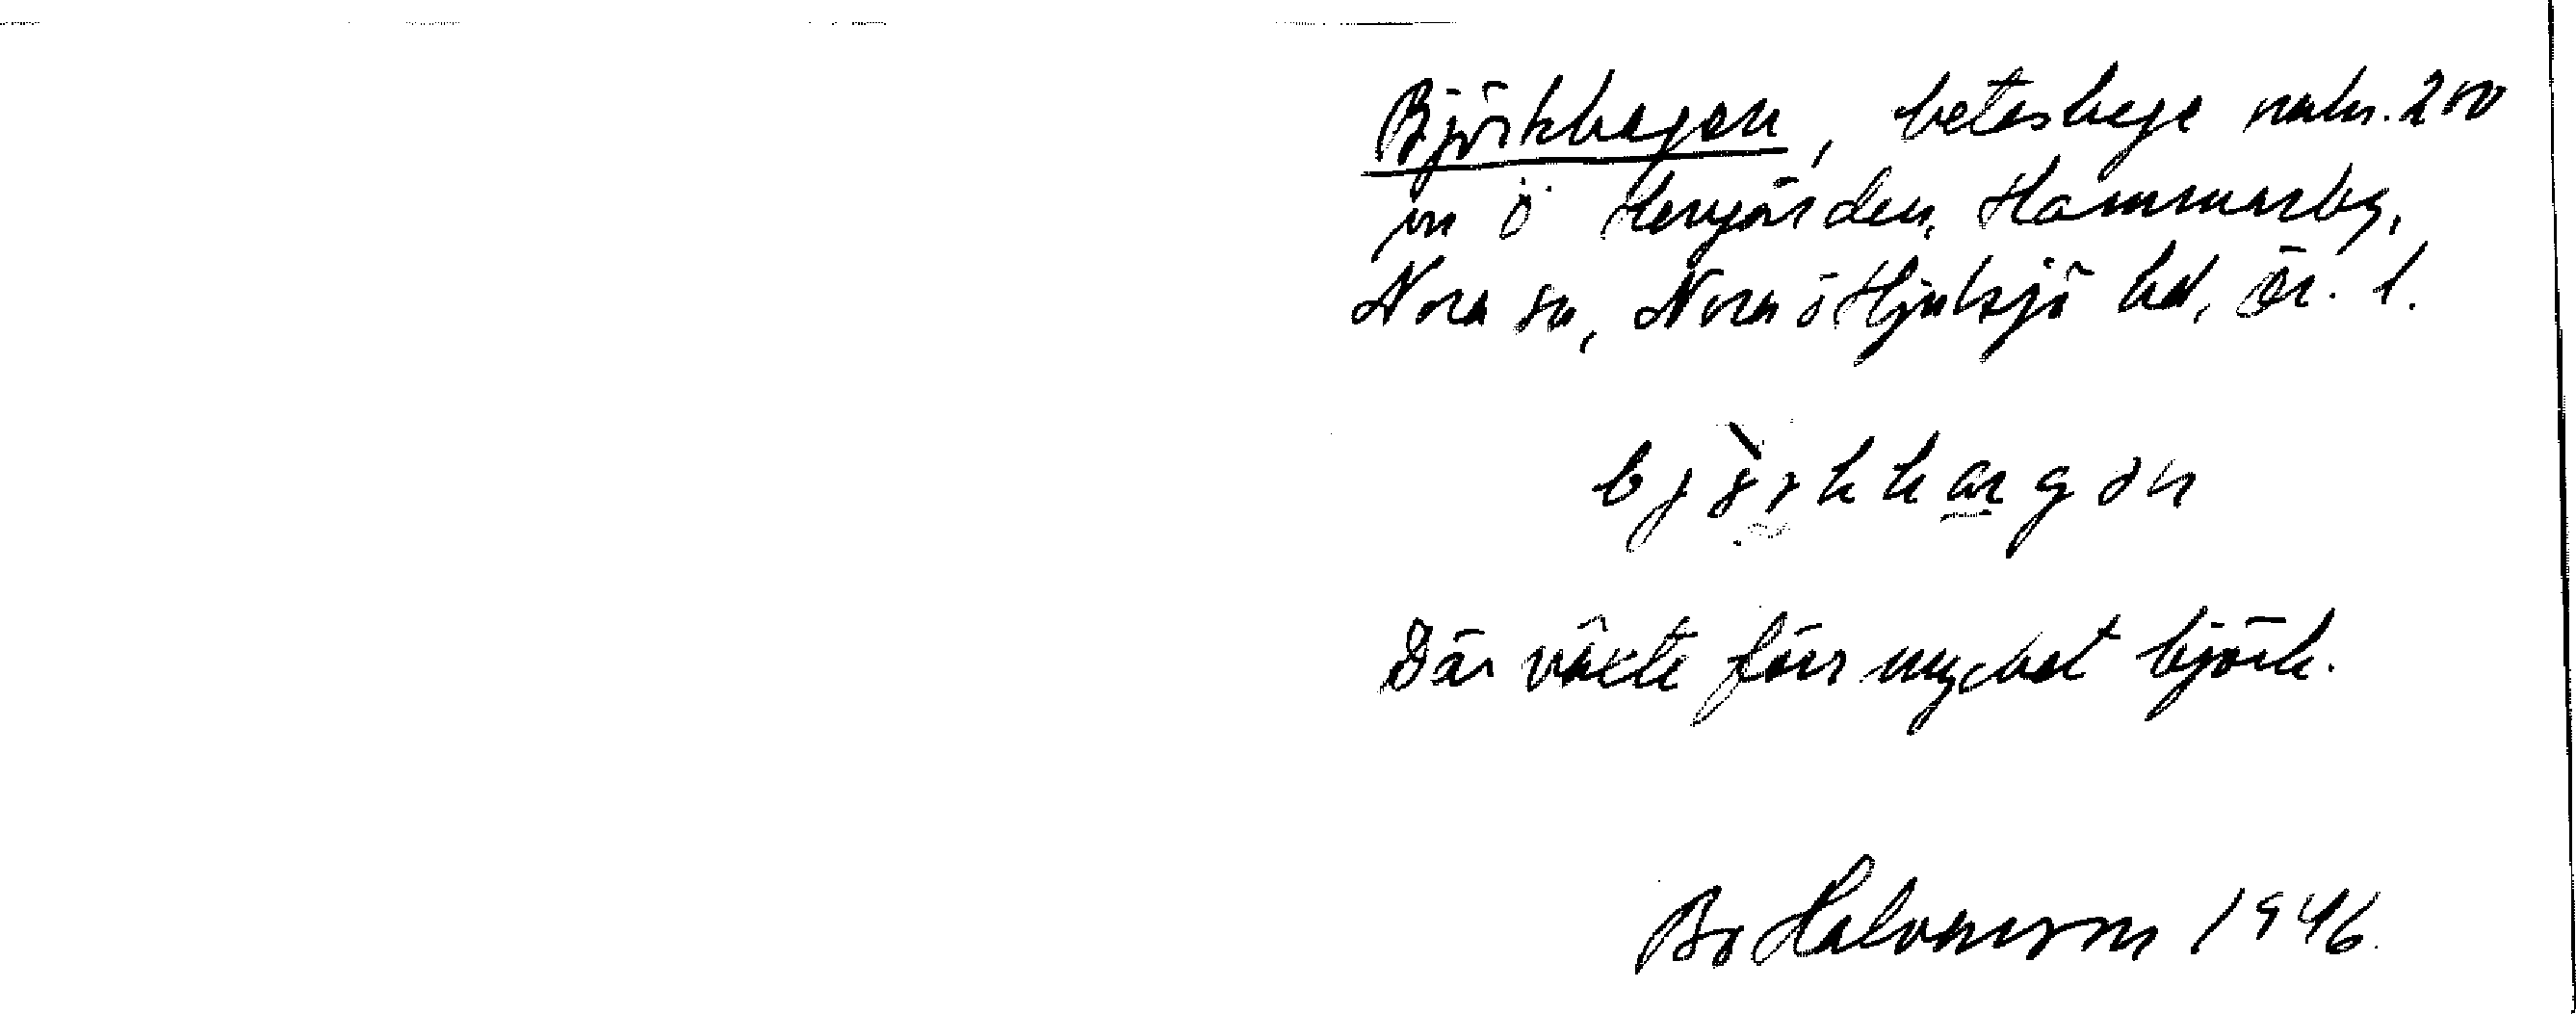 Björkhagen, beteshage 200
m Ö Herrgården, Hammarby,
Nora sn, Nora ö Hjulsjö hd, Ör. l.
Där växte förr mycket björk.
Bo Halvarson 1946.